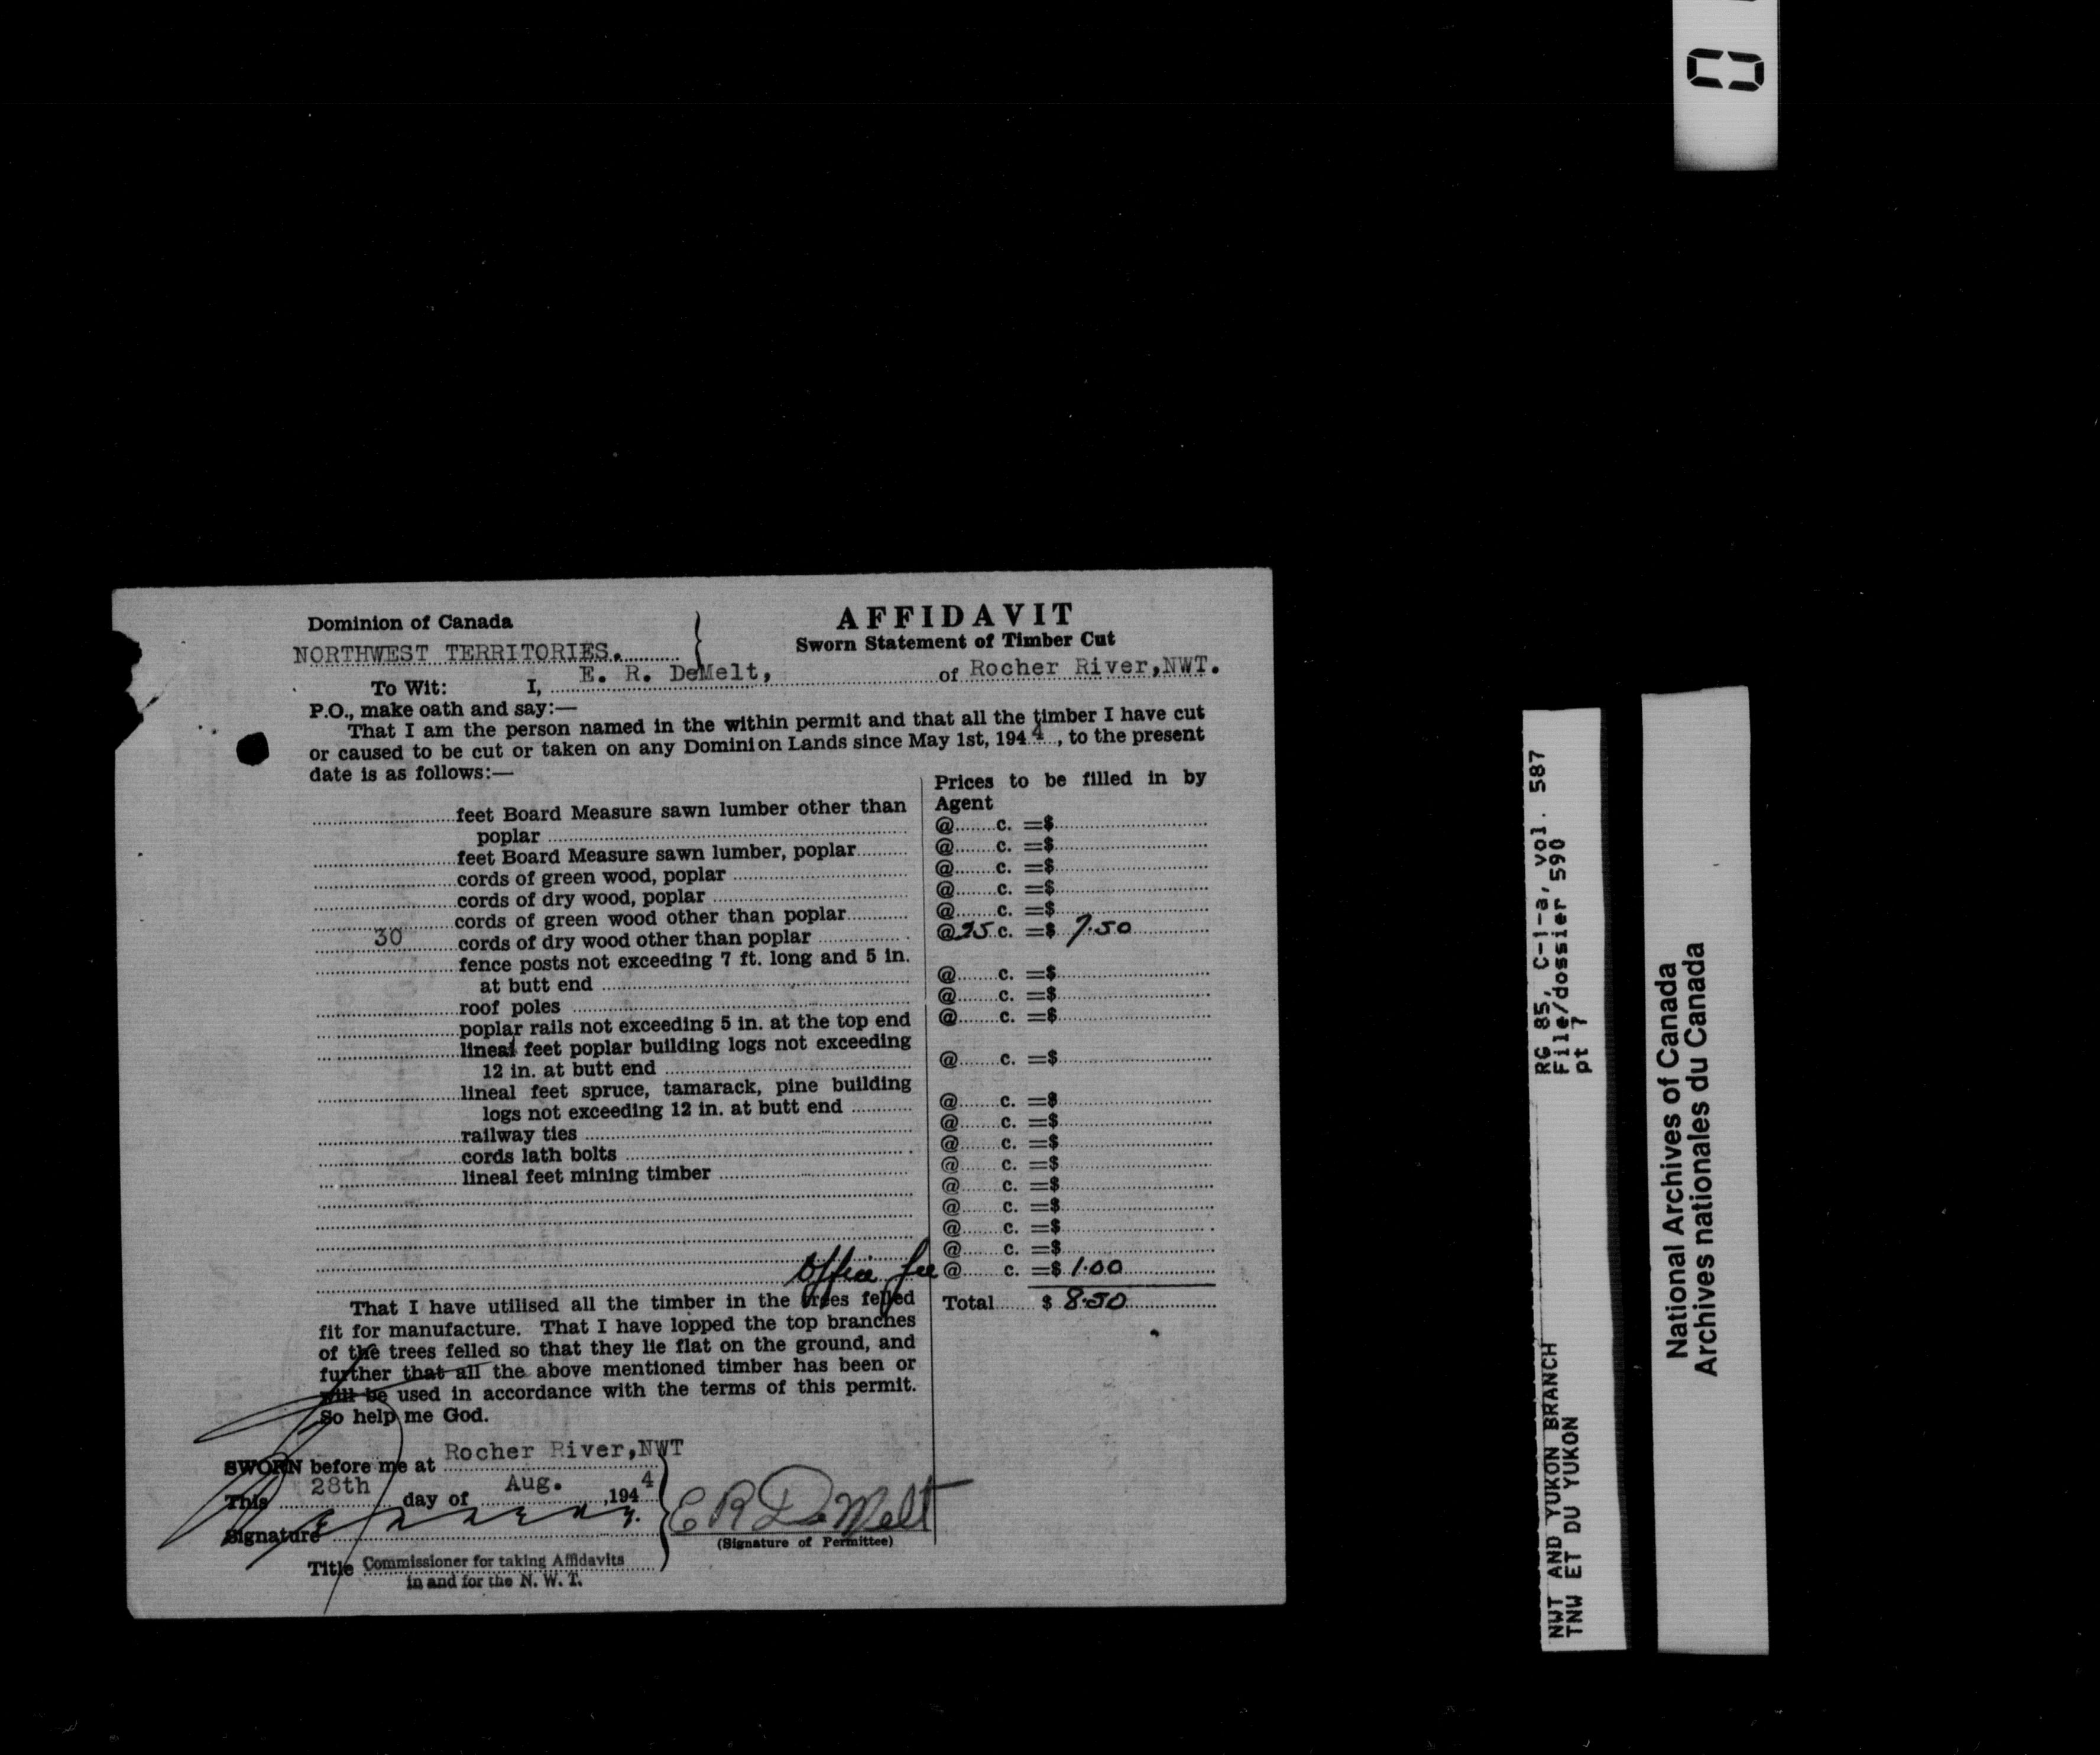 Dominion of Canada
NORTHWEST TERRITORIES.
AFFIDAVIT
Sworn Statement of Timber Cut
To Wit: I, E. R. DeMelt, of Rocher River,NWT.
P.O., make oath and say:—
That I am the person named in the within permit and that all the timber I have cut
or caused to be cut or taken on any Dominion Lands since May 1st, 1944, to the present
date is as follows:—
Prices to be filled in by
Agent
feet Board Measure sawn lumber other than
@ c. =$
poplar
@ c. =$
feet Board Measure sawn lumber, poplar
@ c. =$
cords of green wood, poplar
@ c. =$
cords of dry wood, poplar
@ c. =$
cords of green wood other than poplar
30 cords of dry wood other than poplar @ 25 c. =$ 7.50
fence posts not exceeding 7 ft. long and 5 in.
at butt end @ c. =$
roof poles @ c. =$
poplar rails not exceeding 5 in. at the top end @ c. =$
lineal feet poplar building logs not exceeding
12 in. at butt end @ c. =$
lineal feet spruce, tamarack, pine building
logs not exceeding 12 in. at butt end @ c. =$
railway ties @ c. =$
cords lath bolts @ c. =$
lineal feet mining timber @ c. =$
@ c. =$
@ c. =$
@ c. =$
@ c. =$
Office fee @ c. =$ 1.00
Total $ 8.50
That I have utilised all the timber in the trees felled
fit for manufacture. That I have lopped the top branches
of the trees felled so that they lie flat on the ground, and
further that all the above mentioned timber has been or
will be used in accordance with the terms of this permit.
So help me God.
SWORN before me at Rocher River,NWT
This 28th day of Aug. ,1944
Signature
E R DeMelt
(Signature of Permittee)
Title Commissioner for taking Affidavits
in and for the N. W. T.
RG 85, C-1-a, vol. 587
File/dossier 590
pt 7
NWT AND YUKON BRANCH
TNW ET DU YUKON
National Archives of Canada
Archives nationales du Canada